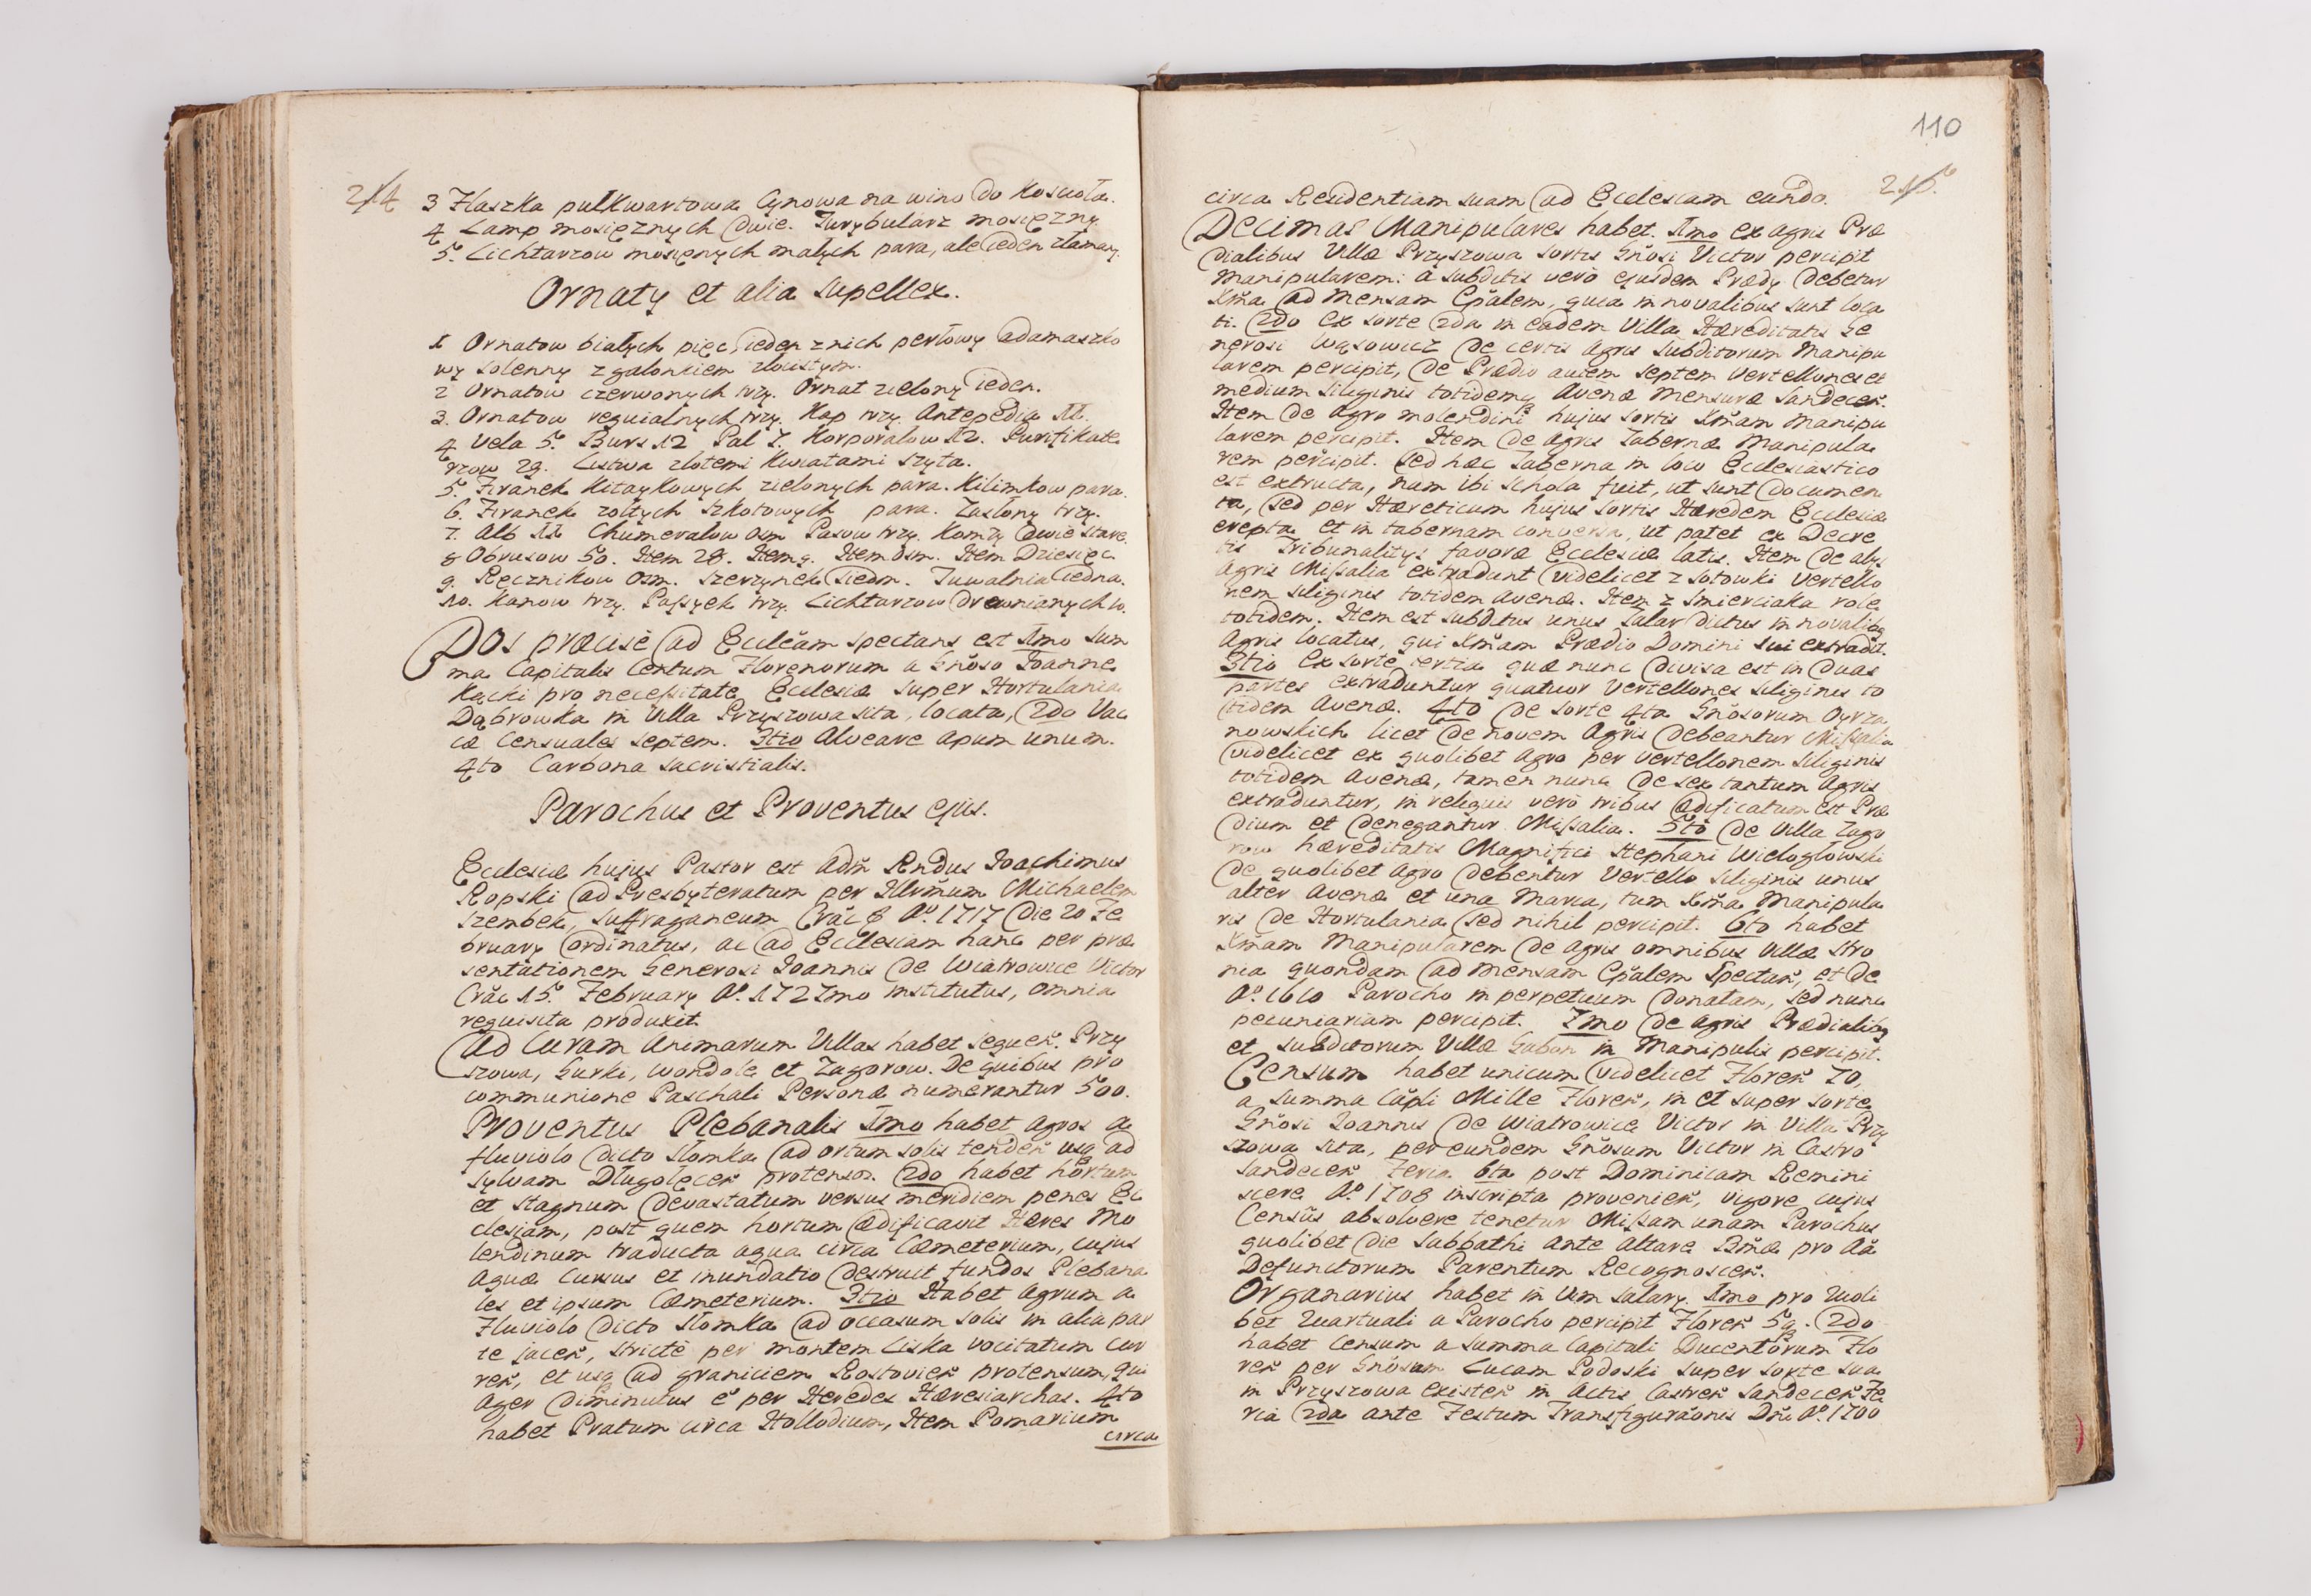 214
3 Flaszka pułkwartowa Cynowa na wino do Koscioła.
4 Lamp mosięznych dwie. Turybularz mosięzny.
5. Lichtarzow mosięnych małych para, ale ieden złamany.
Ornaty et alia Supellex.
1 Ornatow białych pięc, ieden z nich perłowy adamaszko
wy solenny z galonkiem złocistym.
2 Ornatow czerwonych trzy. Ornat zielony ieden.
3. Ornatow requialnych trzy. Kap trzy. Antepedia 11.
4 Vela 5. Burs 12 Pal 7. Korporalow 12. Purifikate
rzow 29. Listwa złotemi Kwiatami szyta.
5. Firanek Kitaykowych zielonych para. Kilimkow para.
6. Firanek zołtych szkotowych para. Zasłony trzy.
7. Alb 11 Chumerałow osm Pasow trzy. Komży dwie stare.
8 Obrusow 50. Item 28. Item 9. Item osm. Item Dziesięc
9. Ręcznikow osm. Szerzynek siedm. Tuwalnia iedna.
10. Kanow trzy. Passyek trzy. Lichtarzow drewnianych 10.
Dos præcisè ad Ecclēam spectans est 1mo Sum
ma Capitalis Centum Florenorum a Gnōso Joanne
Kącki pro necessitate Ecclesiæ super Hortulania
Dąbrowka in Villa Przyszowa sita, locata, 2do Vac
cæ Censuales septem. 3tio Alveare apum unum.
4to Carbona sacristialis.
Parochus et Proventus ejus.
Ecclesiæ hujus Pastor est Adm̄ Rndus Joachimus
Ropski ad Presbyteratum per Illrm̄um Michaelem
Szembek, Suffraganeum Crāc Aº. 1717 die 20 Fe
bruarÿ ordinatus, ac ad Ecclesiam hanc per præ
sentationem Generosi Joannis de Wiatrowice Victor
Crāc 15. Februarÿ Aº. 1727mo institutus, omnia
requisita produxit.
Ad Curam Animarum Villas habet sequen̄. Przy
szowa, Gurki, Wondole et Zagorow. De quibus pro
communione Paschali Personæ numerantur 500.
Proventus Plebanalis 1mo habet agros a
fluviolo dicto Slomka ad ortum solis tenden̄ usq ad
Sylvam Dlugolęcen̄ protensos. 2do habet hortum
et stagnum devastatum versus meridiem penes Ec
clesiam, post quem hortum ædificavit Hæres Mo
lendinum traducta aqua circa Cæmeterium, cujus
aquæ cursus et inundatio destruit fundos Plebana
les et ipsum Cæmeterium. 3tio Habet Agrum a
Fluviolo dicto Slomka ad occasum solis in alia par
te jacen̄, strictè per montem Liska vocitatum cur
ren̄, et usq ad graniciem Rostovien̄ protensum, qui
Ager diminutus ē per Heredes Hæresiarchas. 4to
habet Pratum circa Hollodium, Item Pomarium
circa
110
215.
circa Residentiam suam ad Ecclesiam eundo.
Decimas Manipulares habet. 1mo ex agris Præ
dialibus Villæ Przyszowa sortis Gnōsi Victor percipit
manipularem: a subditis verò ejusdem Prædÿ debetur
Xm̄a ad Mensam Ep̄alem, quia in novalibus sunt loca
ti. 2do Ex sorte 2da in eadem Villa Hæreditatis Ge
nerosi Wąsowicz de certis agris subditorum Manipu
larem percipit, de Prædio autem septem Vertellones et
medium siliginis totidemq Avenæ mensuræ Sandecen̄.
Item de Agro molendini hujus sortis Xm̄am manipu
larem percipit. Item de agris Tabernæ Manipula
rem percipit. Sed hæc Taberna in loco Ecclesiastico
est extructa, nam ibi schola fuit, ut sunt documen
ta, sed per Hæreticum hujus sortis Hæredem Ecclesiæ
erepta et in tabernam conversa, ut patet ex Decre
tis Tribunalitÿs favore Ecclesiæ latis. Item de alÿs
Agris Missalia extradunt videlicet z Sotowki Vertello
nem siliginis totidem avenæ. Item z Smierciaka role
totidem. Item est subditus unus Talar dictus in novalibq
Agris locatus, qui Xm̄am Prædio Domini sui extradit.
3tio Ex sorte tertia quæ nunc divisa est in duas
partes extraduntur quatuor Vertellones siliginis to
tidem Avenæ. 4to de sorte 4ta Gnōsorum Oyrza
nowskich licet de novem Agris debeantur Missalia
videlicet ex quolibet agro per vertellonem siliginis
totidem avenæ, tamen nunc de sex tantum agris
extraduntur, in reliquis verò tribus ædificatum est Præ
dium et denegantur Missalia. 5to de Villa Zago
row hæreditatis Magnifici Stephani Wielogłowski
de quolibet agro debentur Vertello siliginis unus
alter avenæ et una Marca, tum Xm̄a Manipula
ris de Hortulania sed nihil percipit. 6to habet
Xm̄am Manipularem de agris omnibus Villæ Stro
nia quondam ad mensam Ep̄alem Spectan̄, et de
Aº. 1610 Parocho in perpetuum donatam, sed nunc
pecuniariam percipit. 7mo de agris Prædialibq
et subditorum Villæ Gabon in Manipulis percipit.
Censum habet unicum videlicet Floren̄ 70
a summa Cāpli Mille Floren̄, in et super sorte
Gnōsi Joannis de Wiatrowice Victor in Villa Przy
szowa sita, per eundem Gnōsum Victor in Castro
Sandecen̄ Feria 6ta post Dominicam Remini
scere Aº 1708 inscripta provenien̄, vigore cujus
Censûs absolvere tenetur Missam unam Parochus
quolibet die Sabbathi ante altare Bm̄æ pro Aā
Defunctorum Parentum Recognoscen̄.
Organarius habet in Vim Salarÿ 1mo pro Quoli
bet Quartuali a Parocho percipit Floren̄ 5q. 2do
habet censum a summa Capitali Ducentorum Flo
ren̄ per Gnōsum Lucam Podoski super sorte sua
in Przyszowa existen̄ in Actis Castren̄ Sandecen̄ Fe
ria 2da ante Festum Transfigurāonis Dn̄i Aº. 1700